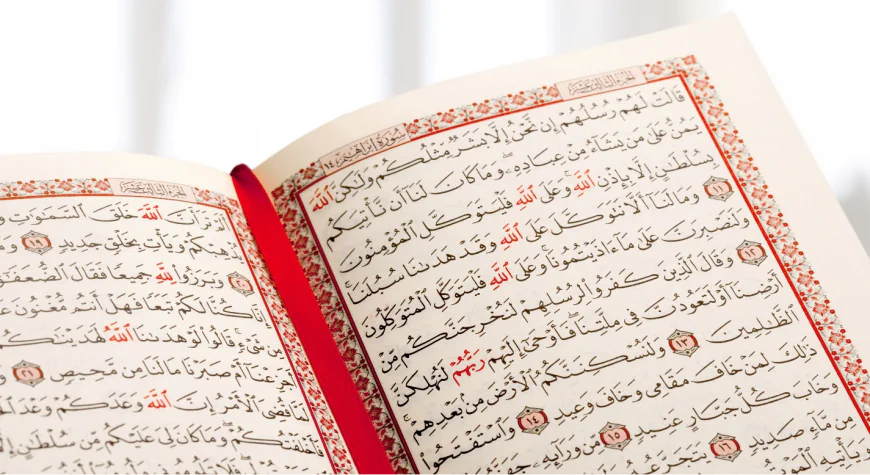 الجزء الثالث عشر
سُورَةُ إِبْرَاهِيمَ ١٤
قَالَتْ لَهُمْ رُسُلُهُمْ إِن نَّحْنُ إِلَّا بَشَرٌ مِّثْلُكُمْ وَلَٰكِنَّ ٱللَّهَ
يَمُنُّ عَلَىٰ مَن يَشَآءُ مِنْ عِبَادِهِۦ وَمَا كَانَ لَنَآ أَن نَّأْتِيَكُم
بِسُلْطَٰنٍ إِلَّا بِإِذْنِ ٱللَّهِ وَعَلَى ٱللَّهِ فَلْيَتَوَكَّلِ ٱلْمُؤْمِنُونَ
١١ وَمَا لَنَآ أَلَّا نَتَوَكَّلَ عَلَى ٱللَّهِ وَقَدْ هَدَىٰنَا سُبُلَنَا
وَلَنَصْبِرَنَّ عَلَىٰ مَآ ءَاذَيْتُمُونَا وَعَلَى ٱللَّهِ فَلْيَتَوَكَّلِ ٱلْمُتَوَكِّلُونَ
١٢ وَقَالَ ٱلَّذِينَ كَفَرُوا۟ لِرُسُلِهِمْ لَنُخْرِجَنَّكُم مِّنْ
أَرْضِنَآ أَوْ لَتَعُودُنَّ فِى مِلَّتِنَا فَأَوْحَىٰٓ إِلَيْهِمْ رَبُّهُمْ لَنُهْلِكَنَّ
ٱلظَّٰلِمِينَ ١٣ وَلَنُسْكِنَنَّكُمُ ٱلْأَرْضَ مِنۢ بَعْدِهِمْ
ذَٰلِكَ لِمَنْ خَافَ مَقَامِى وَخَافَ وَعِيدِ ١٤ وَٱسْتَفْتَحُوا۟
وَخَابَ كُلُّ جَبَّارٍ عَنِيدٍ ١٥ مِّن وَرَآئِهِۦ جَهَنَّمُ
مِن مَّآءٍ صَدِيدٍ ١٦ يَتَجَرَّعُهُۥ
وَيَأْتِيهِ
الجزء الثالث عشر
أَلَمْ تَرَ أَنَّ ٱللَّهَ خَلَقَ ٱلسَّمَٰوَٰتِ
يُذْهِبْكُمْ وَيَأْتِ بِخَلْقٍ جَدِيدٍ ١٩
٢٠ وَبَرَزُوا۟ لِلَّهِ جَمِيعًا فَقَالَ ٱلضُّعَفَٰٓؤُا۟
إِنَّا كُنَّا لَكُمْ تَبَعًا فَهَلْ أَنتُم مُّغْنُونَ
مِن شَىْءٍ قَالُوا۟ لَوْ هَدَىٰنَا ٱللَّهُ لَهَدَيْنَٰكُمْ
أَجَزِعْنَآ أَمْ صَبَرْنَا مَا لَنَا مِن مَّحِيصٍ ٢١
لَمَّا قُضِىَ ٱلْأَمْرُ إِنَّ ٱللَّهَ وَعَدَكُمْ وَعْدَ
فَأَخْلَفْتُكُمْ وَمَا كَانَ لِىَ عَلَيْكُم مِّن سُلْطَٰنٍ